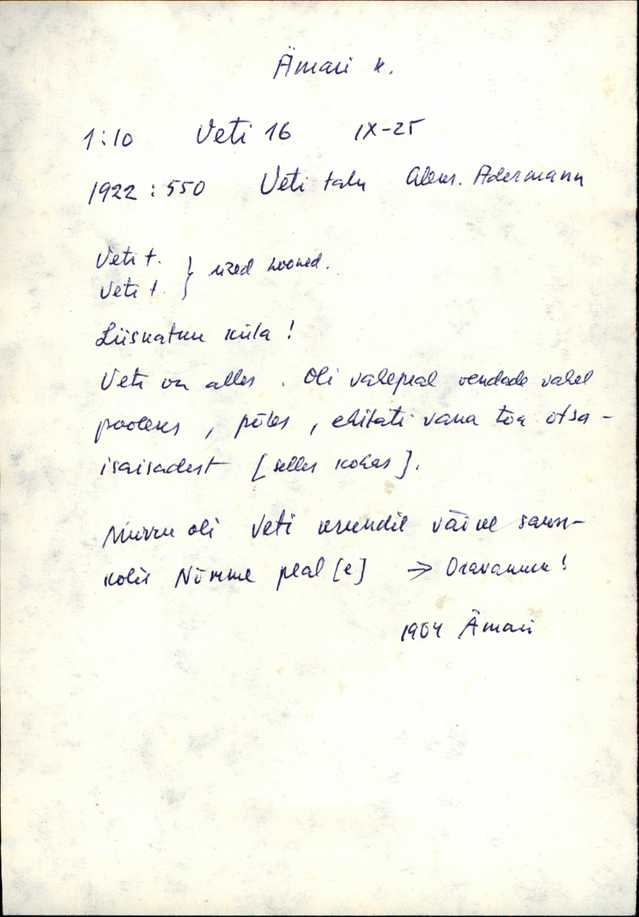 Ämari k.
1:10 Veti 16 IX-25
1922 : 550 Veti talu Aleks. Adermann
Veti t. } uued hooned.
Veti t.
Liisnatmu küla !
Veti on alles . Oli vahepeal vendade vahel
pooleks , põles , ehitati vana toa otsa-
isaisadest [selles kohas].
Murru oli Veti krundil väike saun-
koht Nõmme peal[e] → Oravamu !
1964 Ämari